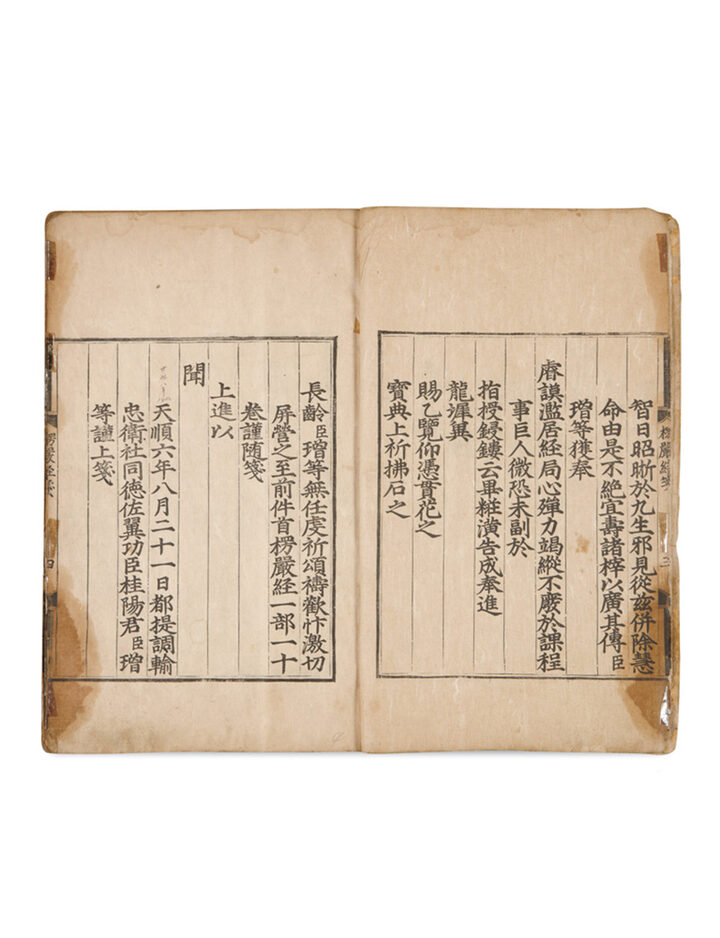 楞嚴経箋 三
智日昭晣於九生邪見從玆併除慧
命由是不絶宜壽諸梓以廣其傳臣
璔等獲奉
睿謨濫居経局心殫力竭縱不廢於課程
事巨人微恐未副於
指授鋟鏤云畢粧潢告成奉進
龍墀冀
賜乙覽仰憑貫花之
寶典上祈拂石之
長齡臣璔等無任虔祈頌禱歡忭激切
屏營之至前件首楞嚴経一部一十
卷謹随箋
上進以
聞
天順六年八月二十一日都提調輸
忠衛社同徳佐翼功臣桂陽君臣璔
等謹上箋
楞嚴経箋 四